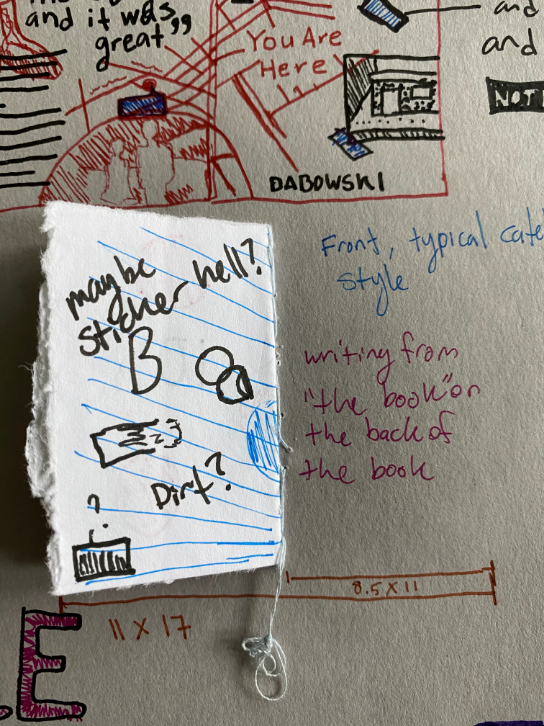 and it was
great"
You Are
Here
and
and
NOT
DABOWSKI
Front, typical cate
style
maybe
sticker hell?
B
Dirt?
?
writing from
"the book" on
the back of
the book
8.5 X 11
11 X 17
E